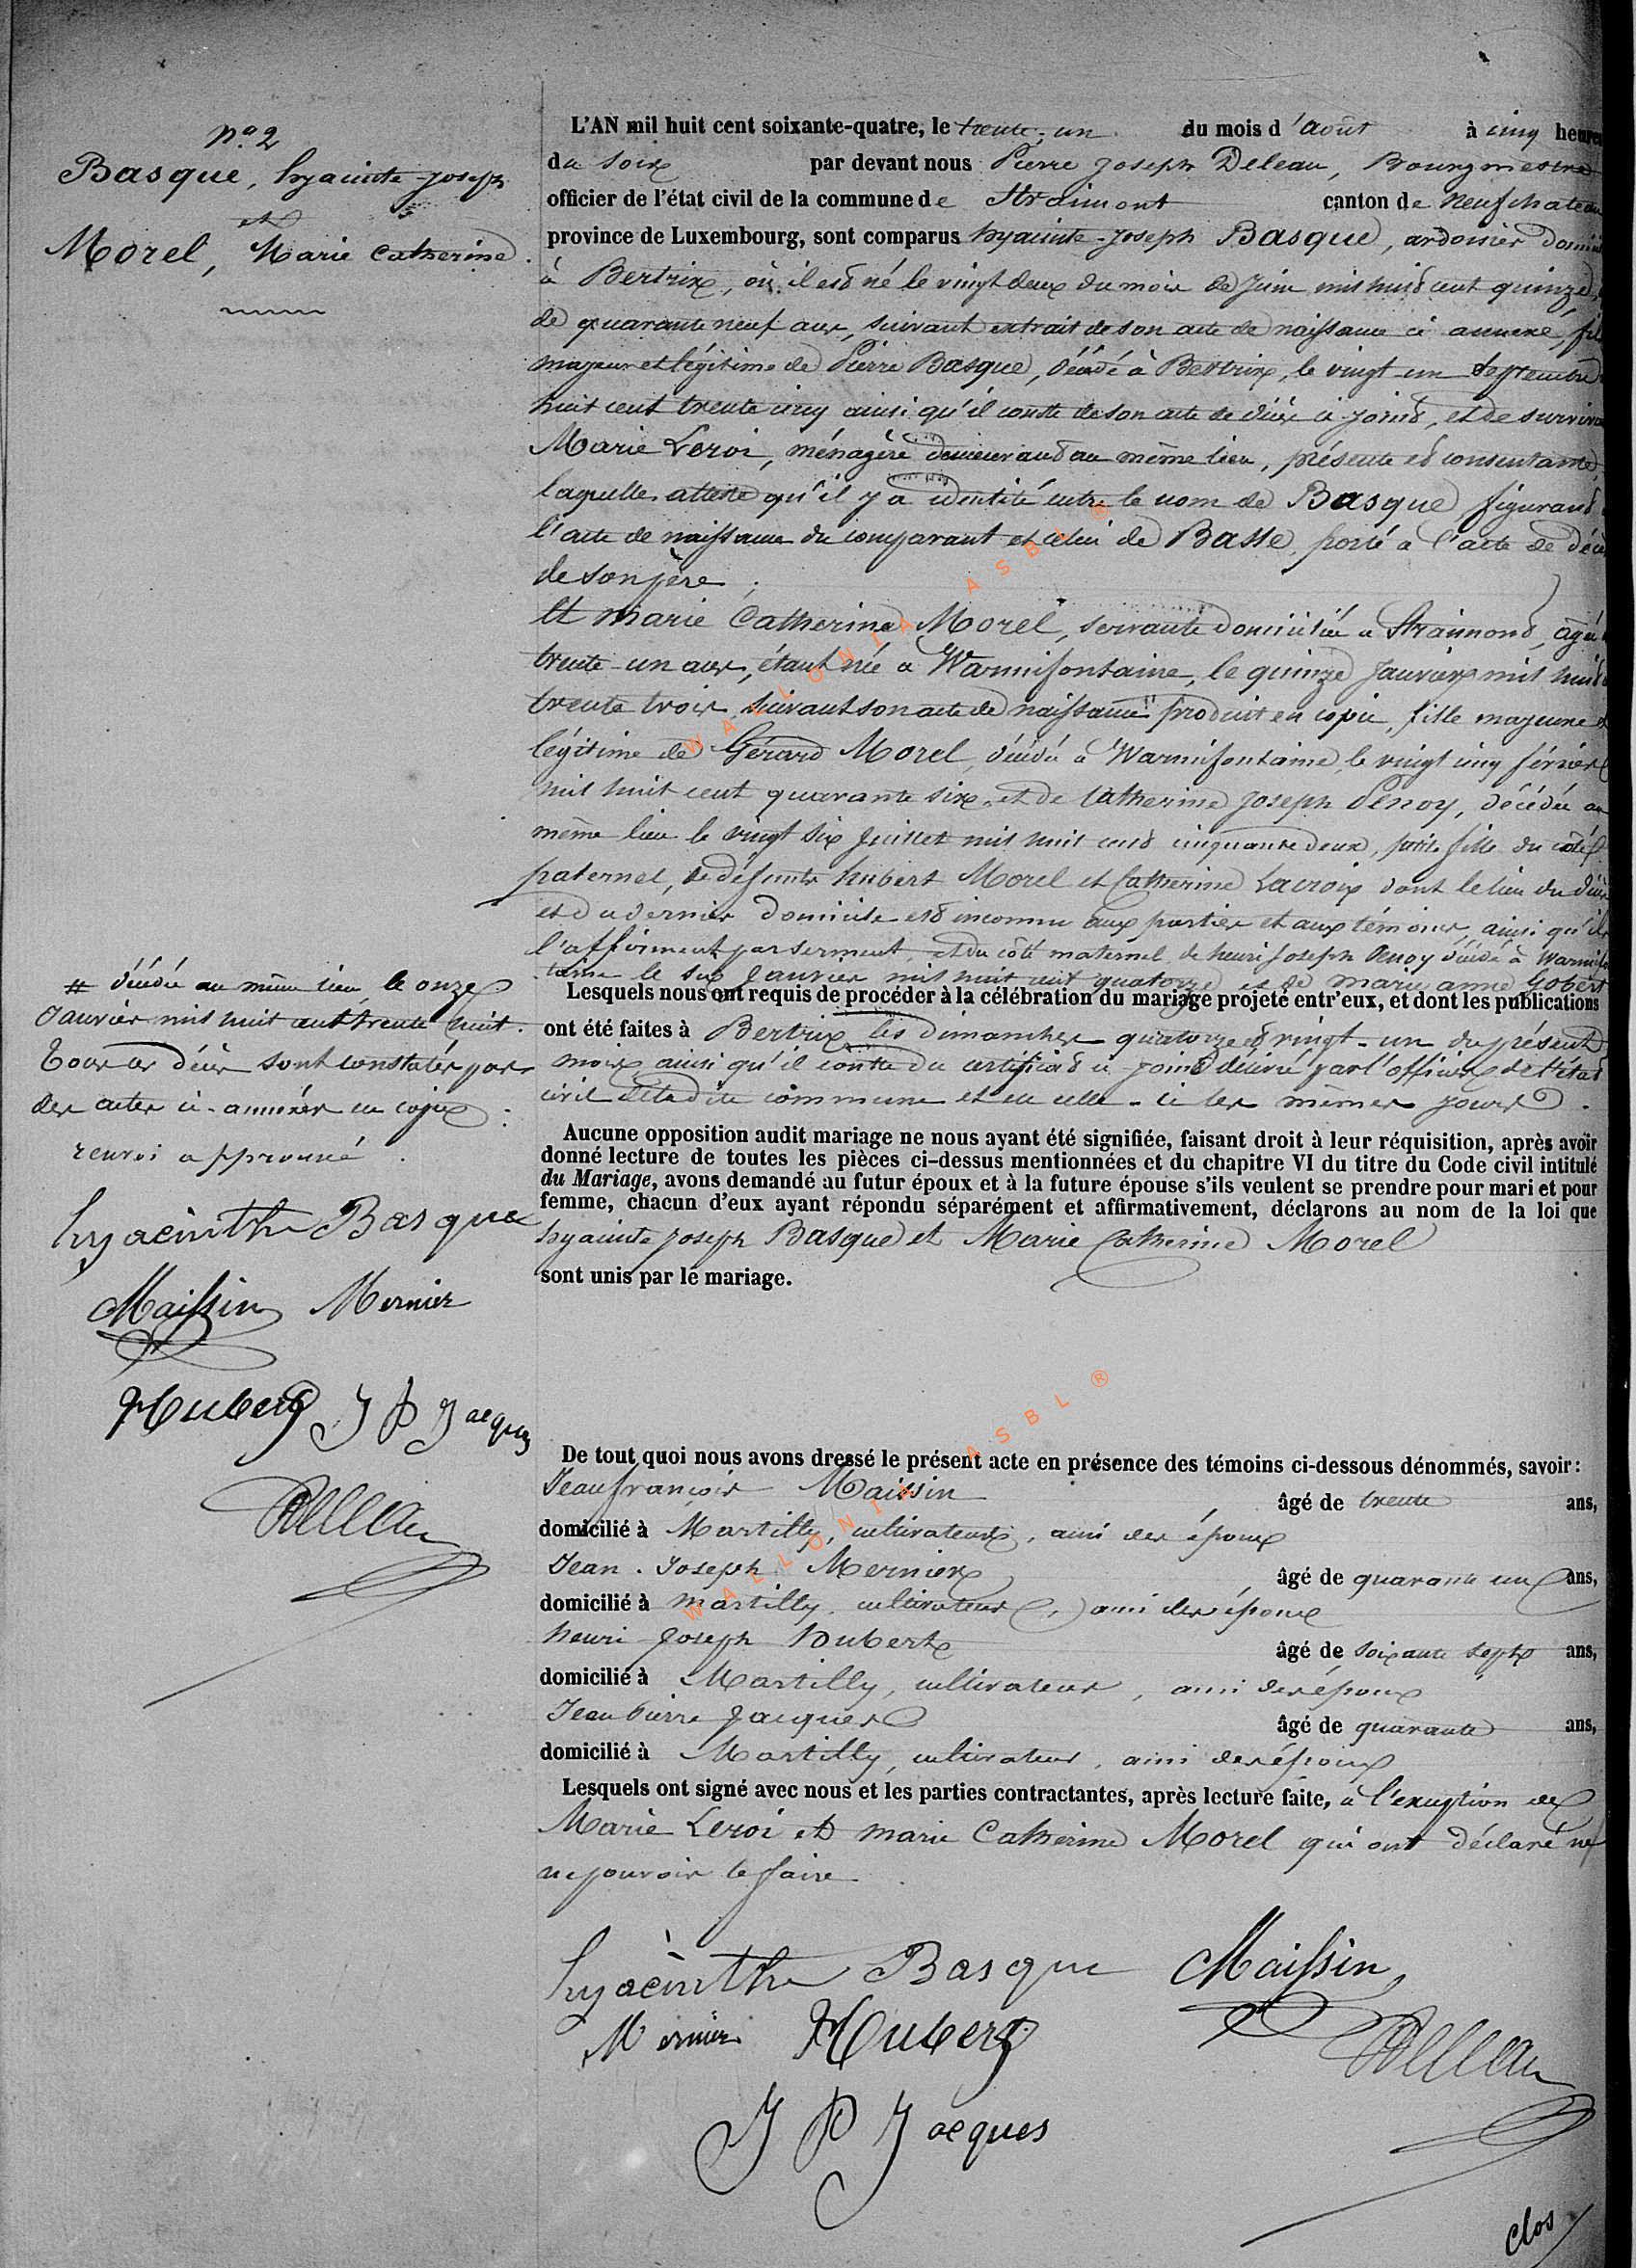 n.º 2
Basque, hyacinte joseph
et
Morel, Marie Catherine
L'AN mil huit cent soixante-quatre, le trente-un du mois d'août à cinq heures
du soir par devant nous Pierre Joseph Deleau, Bourgmestre
officier de l'état civil de la commune de Straimont canton de neufchateau
province de Luxembourg, sont comparus hyacinte-joseph Basque, ardoisier
à Bertrix, où il est né le vingt deux du mois de juin mil huit cent quinze,
de quarante neuf ans, suivant extrait de son acte de naissance ci annexé, fils
majeur et légitime de Pierre Basque, décédé à Bertrix, le vingt un septembre
huit cent trente cinq ainsi qu'il conste de son acte de décès ci joint, et de
Marie Leroi, ménagère demeurant au même lieu, présente et consentante,
laquelle atteste qu'il y a identité entre le nom de Basque figurant
l'acte de naissance du comparant et celui de Basse, porté à l'acte de décès
de son père ;
Et marie Catherine Morel, servante domiciliée à Straimont, âgée
trente-un ans, étant née à Warmifontaine, le quinze janvier mil huit
trente trois, suivant son acte de naissance produit en copie, fille majeure
légitime de Gérard Morel, décédé à Warmifontaine, le vingt cinq février
mil huit cent quarante six, et de Catherine joseph Penoy, décédée au
même lieu le vingt six juillet mil huit cent cinquante deux, petite fille du côté
paternel, de défunts hubert Morel et Catherine Lacroix dont le lieu du décès
et du dernier domicile est inconnu aux parties et aux témoins, ainsi qu'ils
l'affirment par serment, et du côté maternel de henri joseph Penoy décédé à
taine le six janvier mil huit cent quatorze et de marie anne Gobert
# décédée au même lieu, le onze
Janvier mil huit cent trente huit.
Tous ces décès sont constatés par
des actes ci-annexés en copie.
renvoi approuvé.
hyacinthe Basque
Maissin Mernier
Hubert J P Jacques
Deleau
Lesquels nous ont requis de procéder à la célébration du mariage projeté entr'eux, et dont les publications
ont été faites à Bertrix les dimanches quatorze et vingt-un du présent
mois, ainsi qu'il conste du certificat ci joint délivré par l'officier de l'état
civil de la dite commune et en celle-ci les mêmes jours.
Aucune opposition audit mariage ne nous ayant été signifiée, faisant droit à leur réquisition, après avoir
donné lecture de toutes les pièces ci-dessus mentionnées et du chapitre VI du titre du Code civil intitulé
du Mariage, avons demandé au futur époux et à la future épouse s'ils veulent se prendre pour mari et pour
femme, chacun d'eux ayant répondu séparément et affirmativement, déclarons au nom de la loi que
hyacinte joseph Basque et Marie Catherine Morel
sont unis par le mariage.
De tout quoi nous avons dressé le présent acte en présence des témoins ci-dessous dénommés, savoir :
Jean françois Maissin âgé de trente ans,
domicilié à Martilly, cultivateur, ami des époux
Jean-Joseph Mernier âgé de quarante un ans,
domicilié à martilly, cultivateur, ami des époux
henri Joseph hubert âgé de soixante sept ans,
domicilié à Martilly, cultivateur, ami des époux
Jean Pierre Jacques âgé de quarante ans,
domicilié à Martilly, cultivateur, ami des époux
Lesquels ont signé avec nous et les parties contractantes, après lecture faite, à l'exception de
Marie Leroi et marie Catherine Morel qui ont déclaré ne
ne pouvoir le faire.
hyacinthe Basque Maissin
Mernier Hubert Deleau
J P Jacques
clos
WALLONIA ASBL ®
WALLONIA ASBL ®